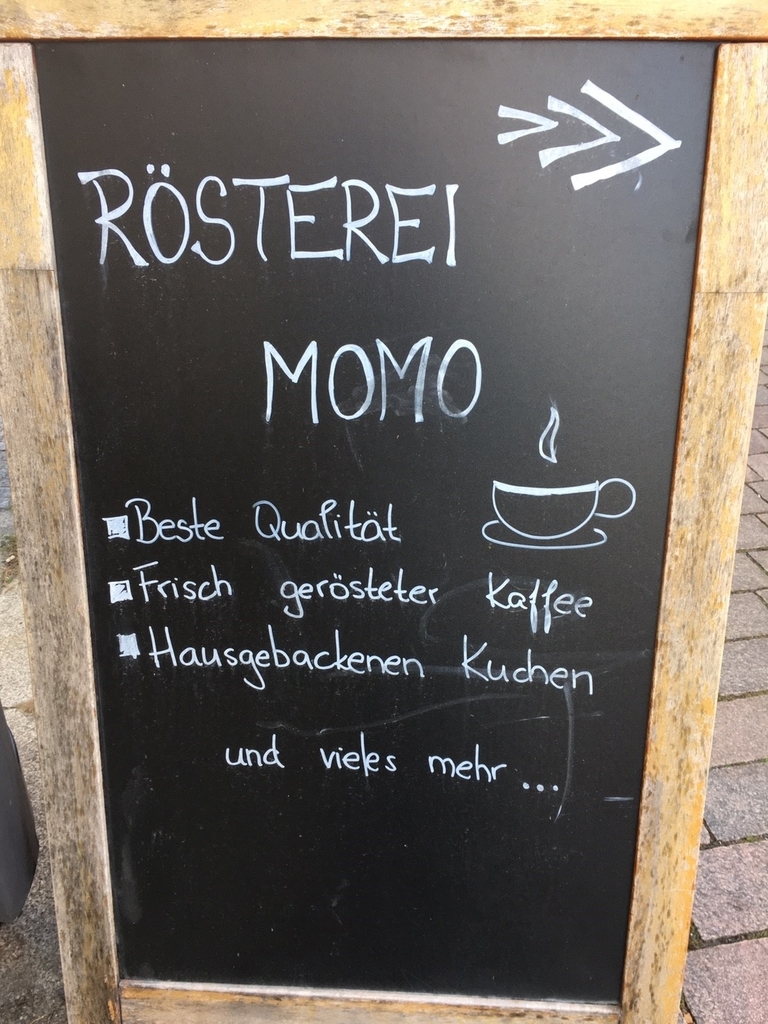 RÖSTEREI
MOMO
Beste Qualität
Frisch gerösteter Kaffee
Hausgebackenen Kuchen
und vieles mehr...